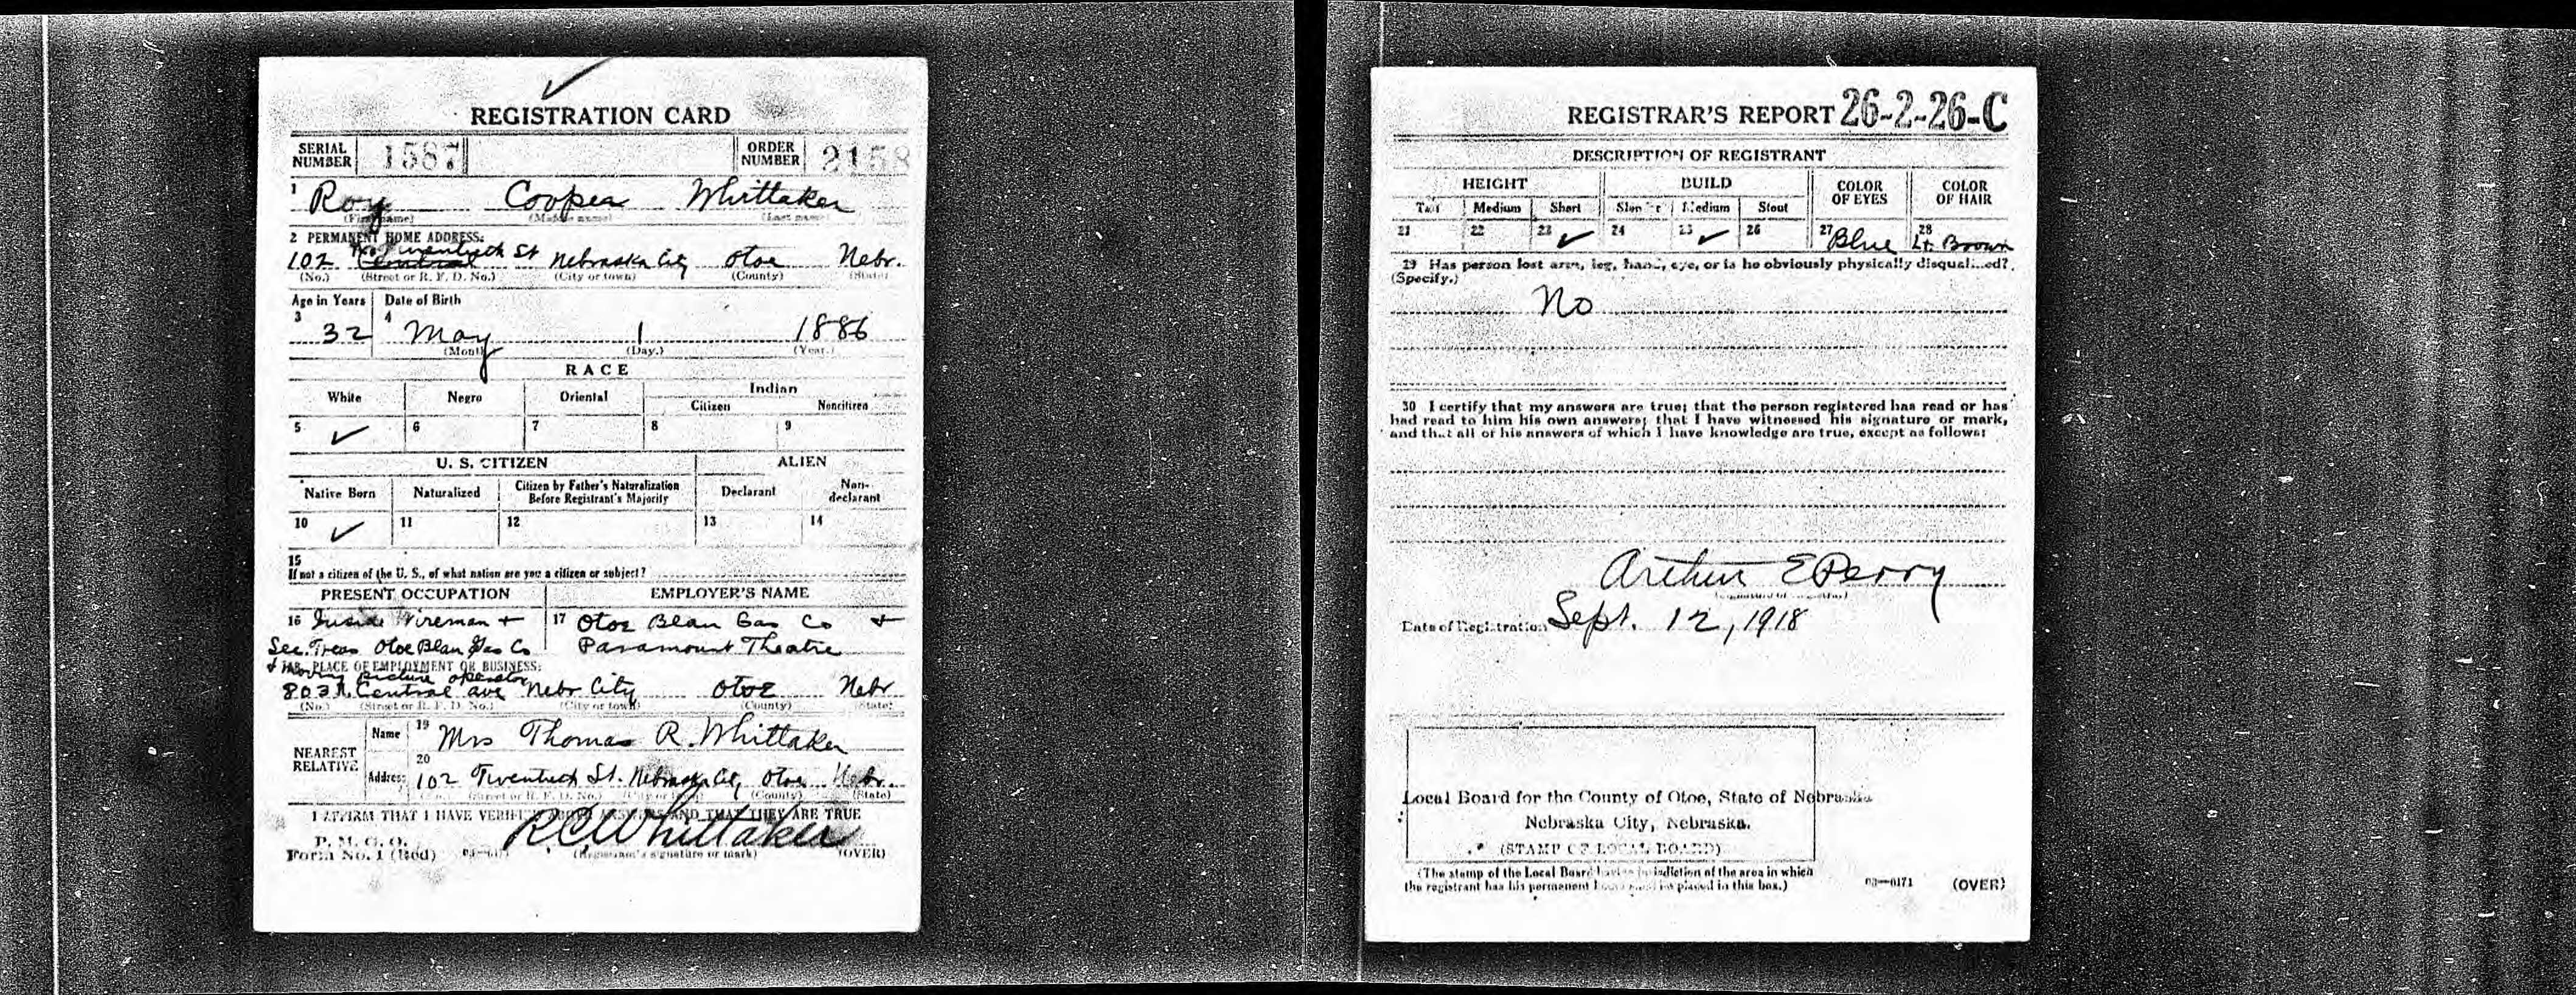 REGISTRATION CARD
SERIAL NUMBER 1587 ORDER NUMBER 2158
1 Roy Cooper Whittaker
(First name) (Middle name) (Last name)
2 PERMANENT HOME ADDRESS:
102 No Twentieth St Nebraska City Otoe Nebr.
(No.) (Street or R. F. D. No.) (City or town) (County) (State)
Age in Years Date of Birth
3 32 4 May 1 1886
(Month) (Day.) (Year.)
RACE
White Negro Oriental Indian
Citizen Noncitizen
5 ✓ 6 7 8 9
U. S. CITIZEN ALIEN
Native Born Naturalized Citizen by Father's Naturalization Before Registrant's Majority Declarant Non-declarant
10 ✓ 11 12 13 14
15
If not a citizen of the U. S., of what nation are you a citizen or subject?
PRESENT OCCUPATION EMPLOYER'S NAME
16 Inside Wireman + 17 Otoe Blau Gas Co +
Sec. Treas Otoe Blau Gas Co Paramount Theatre
+ PLACE OF EMPLOYMENT OR BUSINESS:
Moving picture operator
803 Central ave Nebr City Otoe Nebr
(No.) (Street or R. F. D. No.) (City or town) (County) (State)
NEAREST RELATIVE
Name 19 Mrs Thomas R. Whittaker
Address 20 102 Twentieth St. Nebraska City, Otoe Nebr.
(Street or R. F. D. No.) (City or town) (County) (State)
I AFFIRM THAT I HAVE VERIFIED ABOVE ANSWERS AND THAT THEY ARE TRUE
P. M. G. O.
Form No. 1 (Red) 03-6171 R C Whittaker
(Registrant's signature or mark) (OVER)
REGISTRAR'S REPORT 26-2-26-C
DESCRIPTION OF REGISTRANT
HEIGHT BUILD COLOR OF EYES COLOR OF HAIR
Tall Medium Short Slender Medium Stout
21 22 23 ✓ 24 25 ✓ 26 27 Blue 28 Lt. Brown
29 Has person lost arm, leg, hand, eye, or is he obviously physically disqualified?
(Specify.)
No
30 I certify that my answers are true; that the person registered has read or has
had read to him his own answers; that I have witnessed his signature or mark,
and that all of his answers of which I have knowledge are true, except as follows:
Arthur E Perry
(Signature of registrar)
Date of Registration Sept. 12, 1918
Local Board for the County of Otoe, State of Nebraska
Nebraska City, Nebraska.
(STAMP OF LOCAL BOARD)
(The stamp of the Local Board having jurisdiction of the area in which
the registrant has his permanent home must be placed in this box.)
03-6171 (OVER)